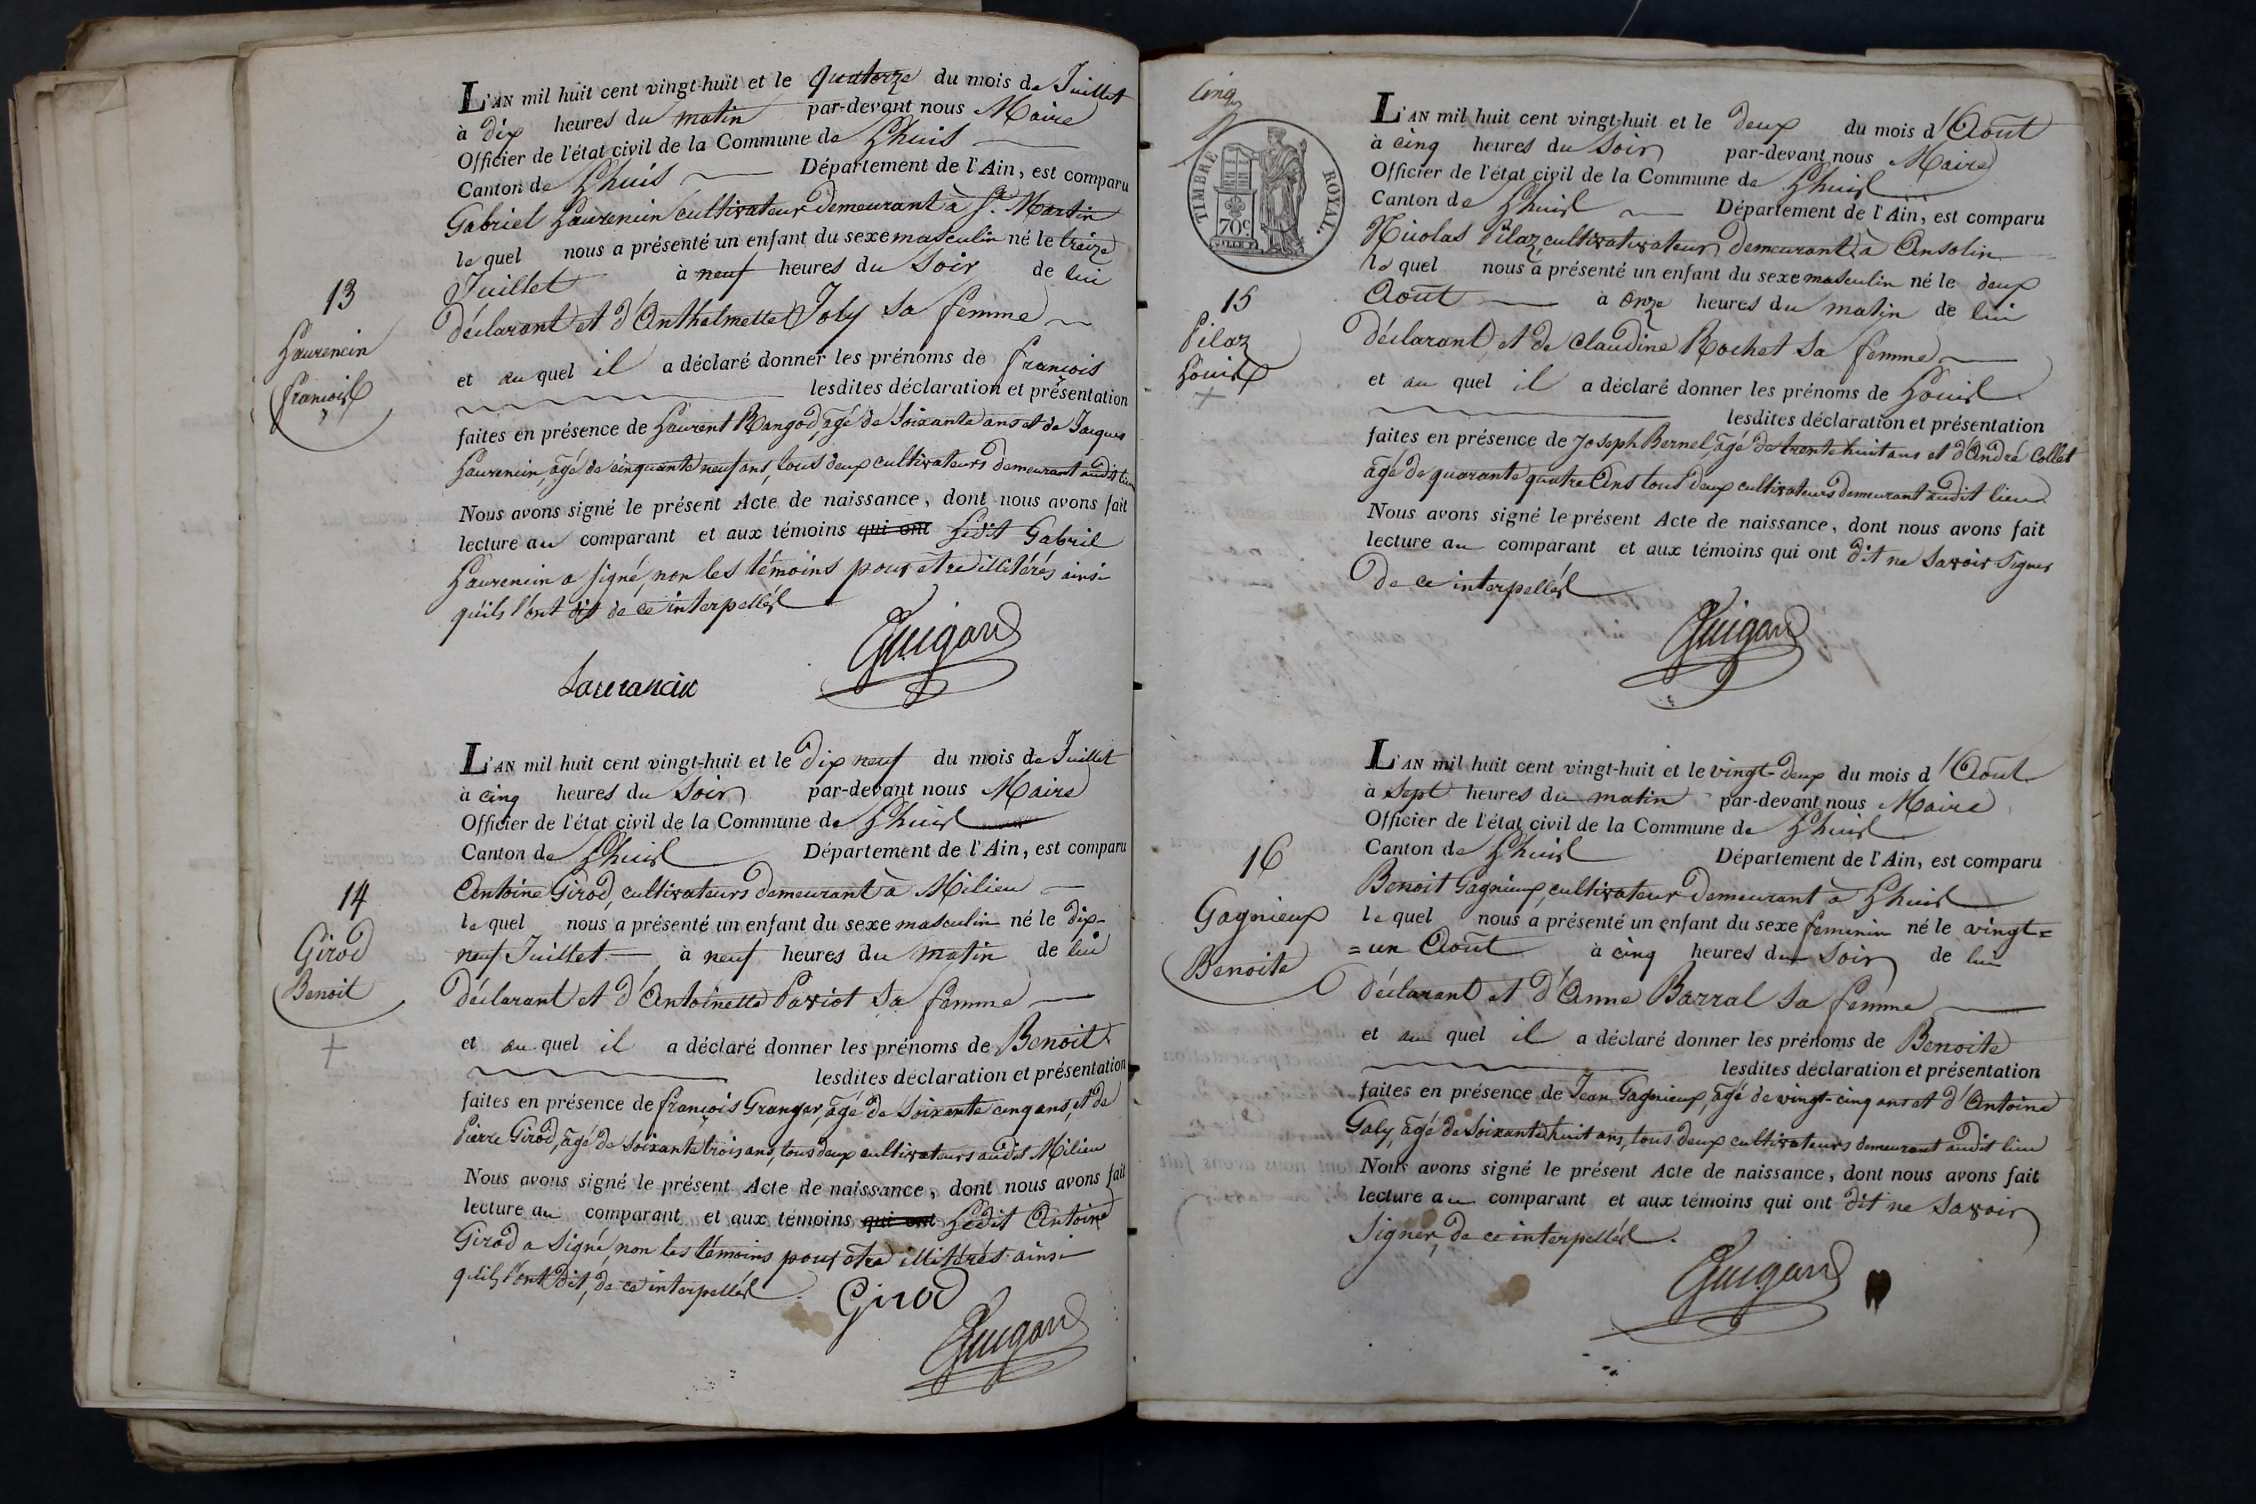 13
Laurencin
François
L'AN mil huit cent vingt-huit et le quatorze du mois de Juillet
à dix heures du matin par-devant nous Maire
Officier de l'état civil de la Commune de Lhuis
Canton de Lhuis Département de l'Ain, est comparu
Gabriel Laurencin cultivateur demeurant à St. Martin
le quel nous a présenté un enfant du sexe masculin né le treize
Juillet à neuf heures du Soir de lui
déclarant et d'Anthelmette Joly sa femme
et au quel il a déclaré donner les prénoms de françois
lesdites déclaration et présentation
faites en présence de Laurent Rangod, âgé de Soixante ans et de Jacques
Laurencin, âgé de cinquante neuf ans, tous deux cultivateurs demeurant audit lieu
Nous avons signé le présent Acte de naissance, dont nous avons fait
lecture au comparant et aux témoins qui ont Ledit Gabriel
Laurencin a signé, non les témoins pour etre illitérés ainsi
qu'ils l'ont dit de ce interpellés
Guigard
Laurancin
14
Girod
Benoit
+
L'AN mil huit cent vingt-huit et le dix neuf du mois de Juillet
à cinq heures du Soir par-devant nous Maire
Officier de l'état civil de la Commune de Lhuis
Canton de Lhuis Département de l'Ain, est comparu
Antoine Girod, cultivateurs demeurant à Milieu
le quel nous a présenté un enfant du sexe masculin né le dix-
neuf Juillet à neuf heures du matin de lui
déclarant et d'Antoinette Paviot sa femme
et au quel il a déclaré donner les prénoms de Benoit
lesdites déclaration et présentation
faites en présence de françois Granger, âgé de Soixante cinq ans, et de
Pierre Girod, âgé de Soixante trois ans, tous deux cultivateurs audit Milieu
Nous avons signé le présent Acte de naissance, dont nous avons fait
lecture au comparant et aux témoins qui ont Ledit Antoine
Girod a Signé, non les témoins pour être illitérés ainsi
qu'ils l'ont dit, de ce interpellés
Girod
Guigard
Cinq
TIMBRE ROYAL
70c
15
Pilaz
Louis
+
L'AN mil huit cent vingt-huit et le deux du mois d'Août
à cinq heures du Soir par-devant nous Maire
Officier de l'état civil de la Commune de Lhuis
Canton de Lhuis Département de l'Ain, est comparu
Nicolas Pilaz, cultivativateur demeurant à Ansolin
le quel nous a présenté un enfant du sexe masculin né le deux
Août à onze heures du matin de lui
déclarant et de Claudine Rochet sa femme
et au quel il a déclaré donner les prénoms de Louis
lesdites déclaration et présentation
faites en présence de Joseph Bernel, âgé de trente huit ans et d'André Collet
âgé de quarante quatre Ans tous deux cultivateurs demeurant audit lieu
Nous avons signé le présent Acte de naissance, dont nous avons fait
lecture au comparant et aux témoins qui ont dit ne Savoir Signer
De ce interpellés
Guigard
16
Gagnieux
Benoite
L'AN mil huit cent vingt-huit et le vingt-deux du mois d'Août
à Sept heures du matin par-devant nous Maire
Officier de l'état civil de la Commune de Lhuis
Canton de Lhuis Département de l'Ain, est comparu
Benoit Gagnieux, cultivateur demeurant à Lhuis
le quel nous a présenté un enfant du sexe feminin né le vingt=
=un Août à cinq heures du Soir de lui
déclarant et d'Anne Barral sa femme
et au quel il a déclaré donner les prénoms de Benoite
lesdites déclaration et présentation
faites en présence de Jean Gagnieux, âgé de vingt-cinq ans et d'Antoine
Galy, âgé de Soixante huit ans, tous deux cultivateurs demeurant audit lieu
Nous avons signé le présent Acte de naissance, dont nous avons fait
lecture au comparant et aux témoins qui ont dit ne Savoir
Signer, de ce interpellés.
Guigard